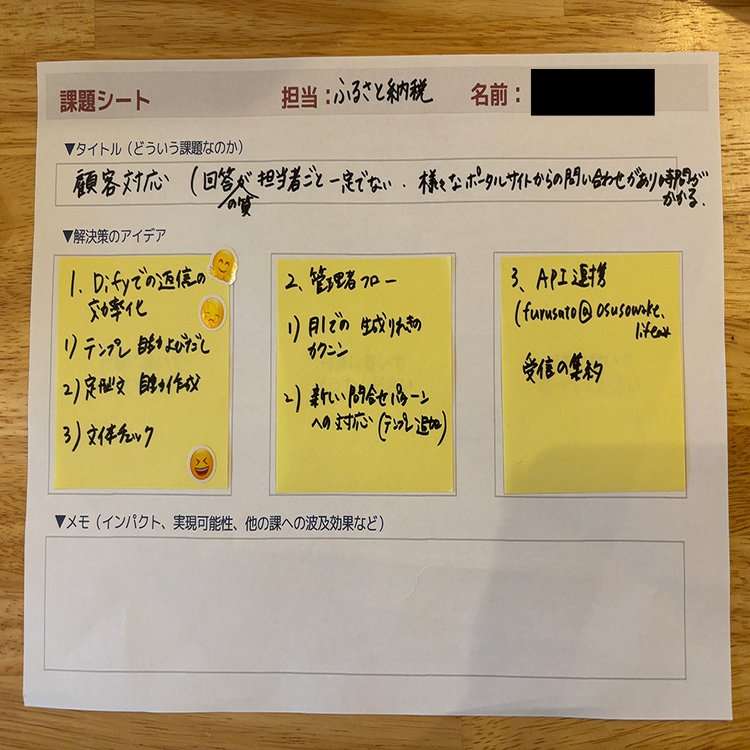 課題シート
担当：ふるさと納税
名前：
▼タイトル（どういう課題なのか）
顧客対応 （回答の質が担当者ごと一定でない．様々なポータルサイトからの問い合わせがあり時間が
かかる．
▼解決策のアイデア
1. Difyでの返信の
効率化
1) テンプレ 自動よびだし
2) 定型文 自動作成
3) 文体チェック
2. 管理者フロー
1) 月1での 生成りれきの
カクニン
2) 新しい問合せパターン
への対応（テンプレ追加）
3. API連携
(furusato@osusowake.
受信の集約
▼メモ（インパクト、実現可能性、他の課への波及効果など）